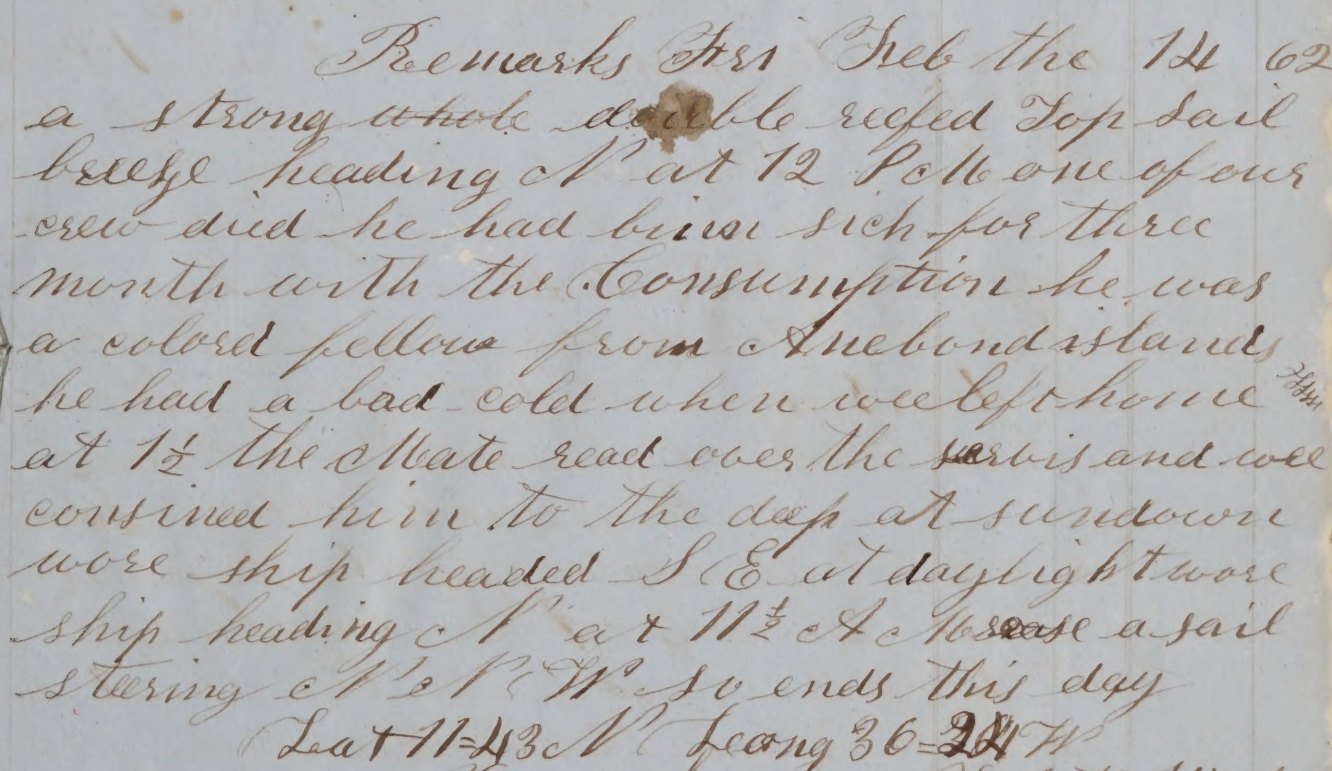 Remarks Fri Feb the 14 62
a strong whole double reefed Top sail
breeze heading N at 12 P M one of our
crew died he had binn sick for three
month with the Consumption he was
a colord fellow from Anebond islands
he had a bad cold when wee left home
at 1½ the Mate read over the servis and wee
consined him to the deep at sundown
wore ship headed S E at daylight wore
ship heading N at 11½ A M a sail
steering N N W so ends this day
Lat 11=43 N Leong 36= W